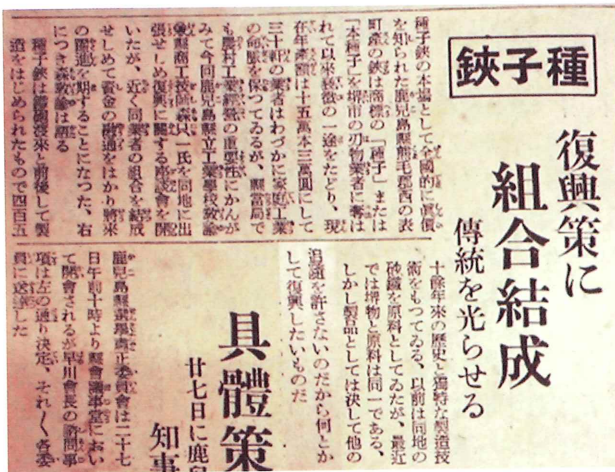 種子鋏
復興策に
組合結成
傳統を光らせる
種子鋏の本場として全國的に眞價
を知られた鹿兒島縣熊毛郡西の表
町產の鋏は商標の「種子」または
「本種子」を堺市の刃物業者に奪は
れて以來衰微の一途をたどり、現
在年產額は十五萬本三萬圓にして
三十軒の業者はわづかに家庭工業
の命脈を保つてゐるが、縣當局で
も農村工業經營の重要性にかんが
みて今回鹿兒島縣立工業學校敎諭
兼縣商工技師森只一氏を同地に出
張せしめ復興に關する座談會を開
いたが、近く同業者の組合を結成
せしめて資金の融通をはかり將來
の躍進を期することになつた、右
につき森敎諭は語る
種子鋏は鐵砲渡來と前後して製
造をはじめられたもので四百五
十餘年來の歷史と獨特な製造技
術をもつてゐる、以前は同地の
砂鐵を原料としてゐたが、最近
では堺物と原料は同一である、
しかし製品としては決して他の
追隨を許さないのだから何とか
して復興したいものだ
具體策
廿七日に鹿兒
知事
鹿兒島縣選擧肅正委員會は二十七
日午前十時より縣會議事堂におい
て開會されるが早川會長の諮問事
項は左の通り決定、それ〲各委
員に送達した